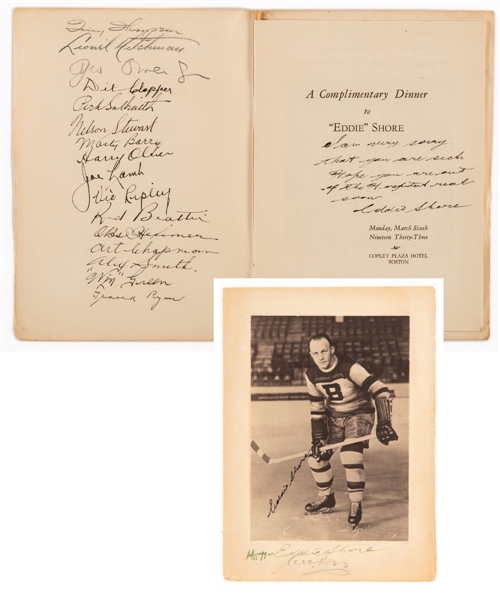 Tiny Thompson
Lionel Hitchman
Geo Owen Jr
Dit Clapper
Perk Galbraith
Nelson Stewart
Marty Barry
Harry Oliver
Joe Lamb
Vic Ripley
Red Beattie
Obs Heximer
Art Chapman
Alex Smith.
"Wilf" Green
Frank Ryan
A Complimentary Dinner
to
"EDDIE" SHORE
I am very sorry
that you are sick
Hope you are out
of the Hospital real
soon
Eddie Shore
Monday, March Sixth
Nineteen Thirty-Three
COPLEY PLAZA HOTEL
BOSTON
B
Eddie Shore
Eddie Shore